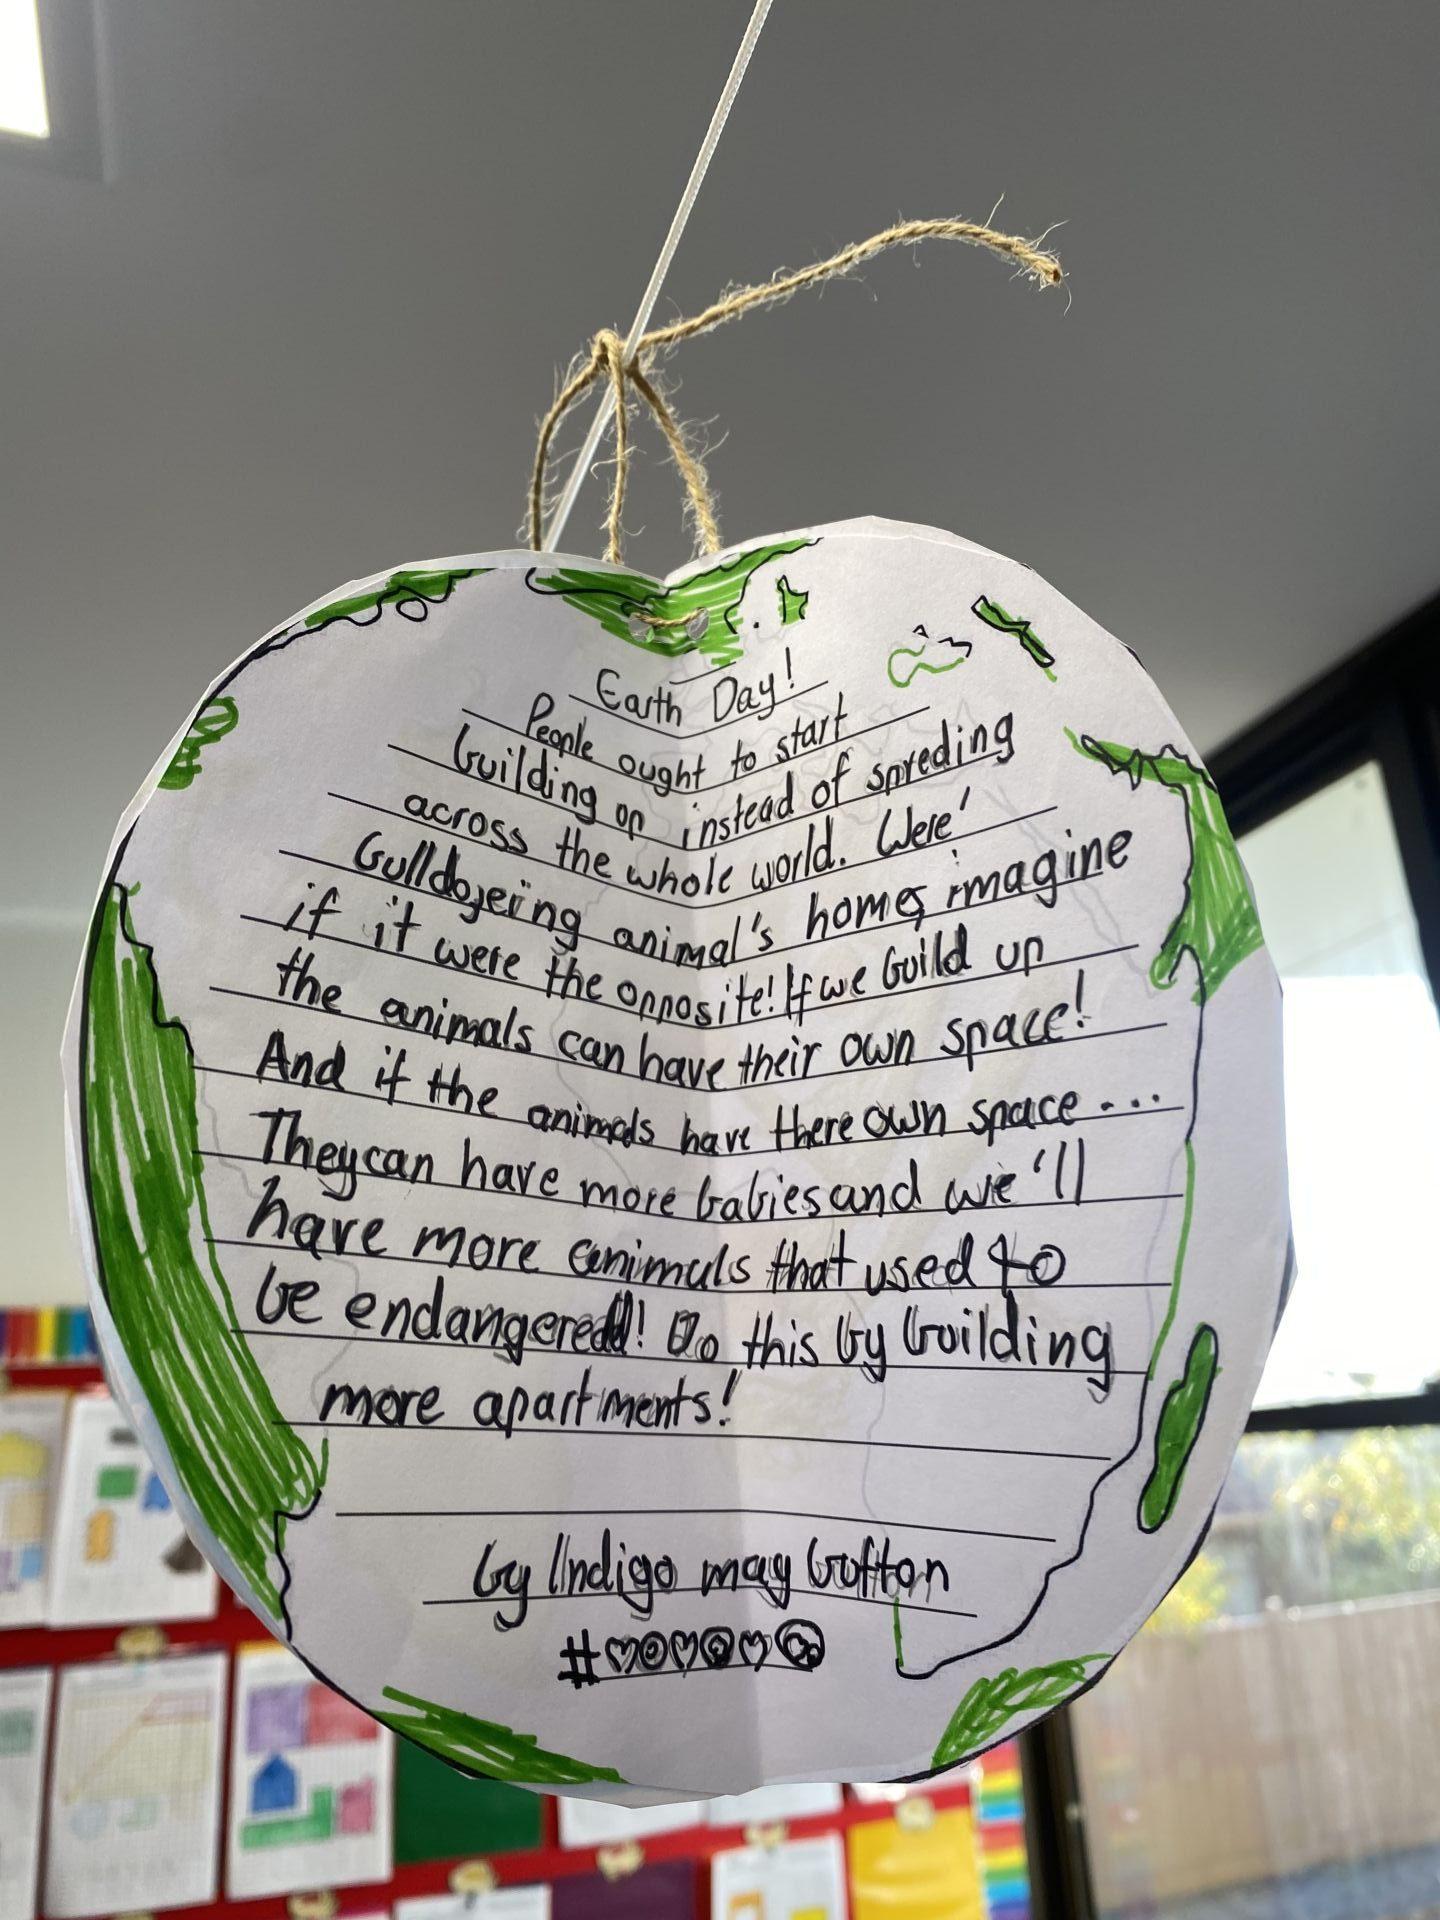 Earth Day!
People ought to start
building up instead of spreding
across the whole world. Were'
bulldozering animal's homes, imagine
if it were the opposite! If we build up
the animals can have their own space!
And if the animals have there own space...
They can have more babies and we'll
have more animals that used to
be endangered! Do this by building
more apartments!
by Indigo may
#